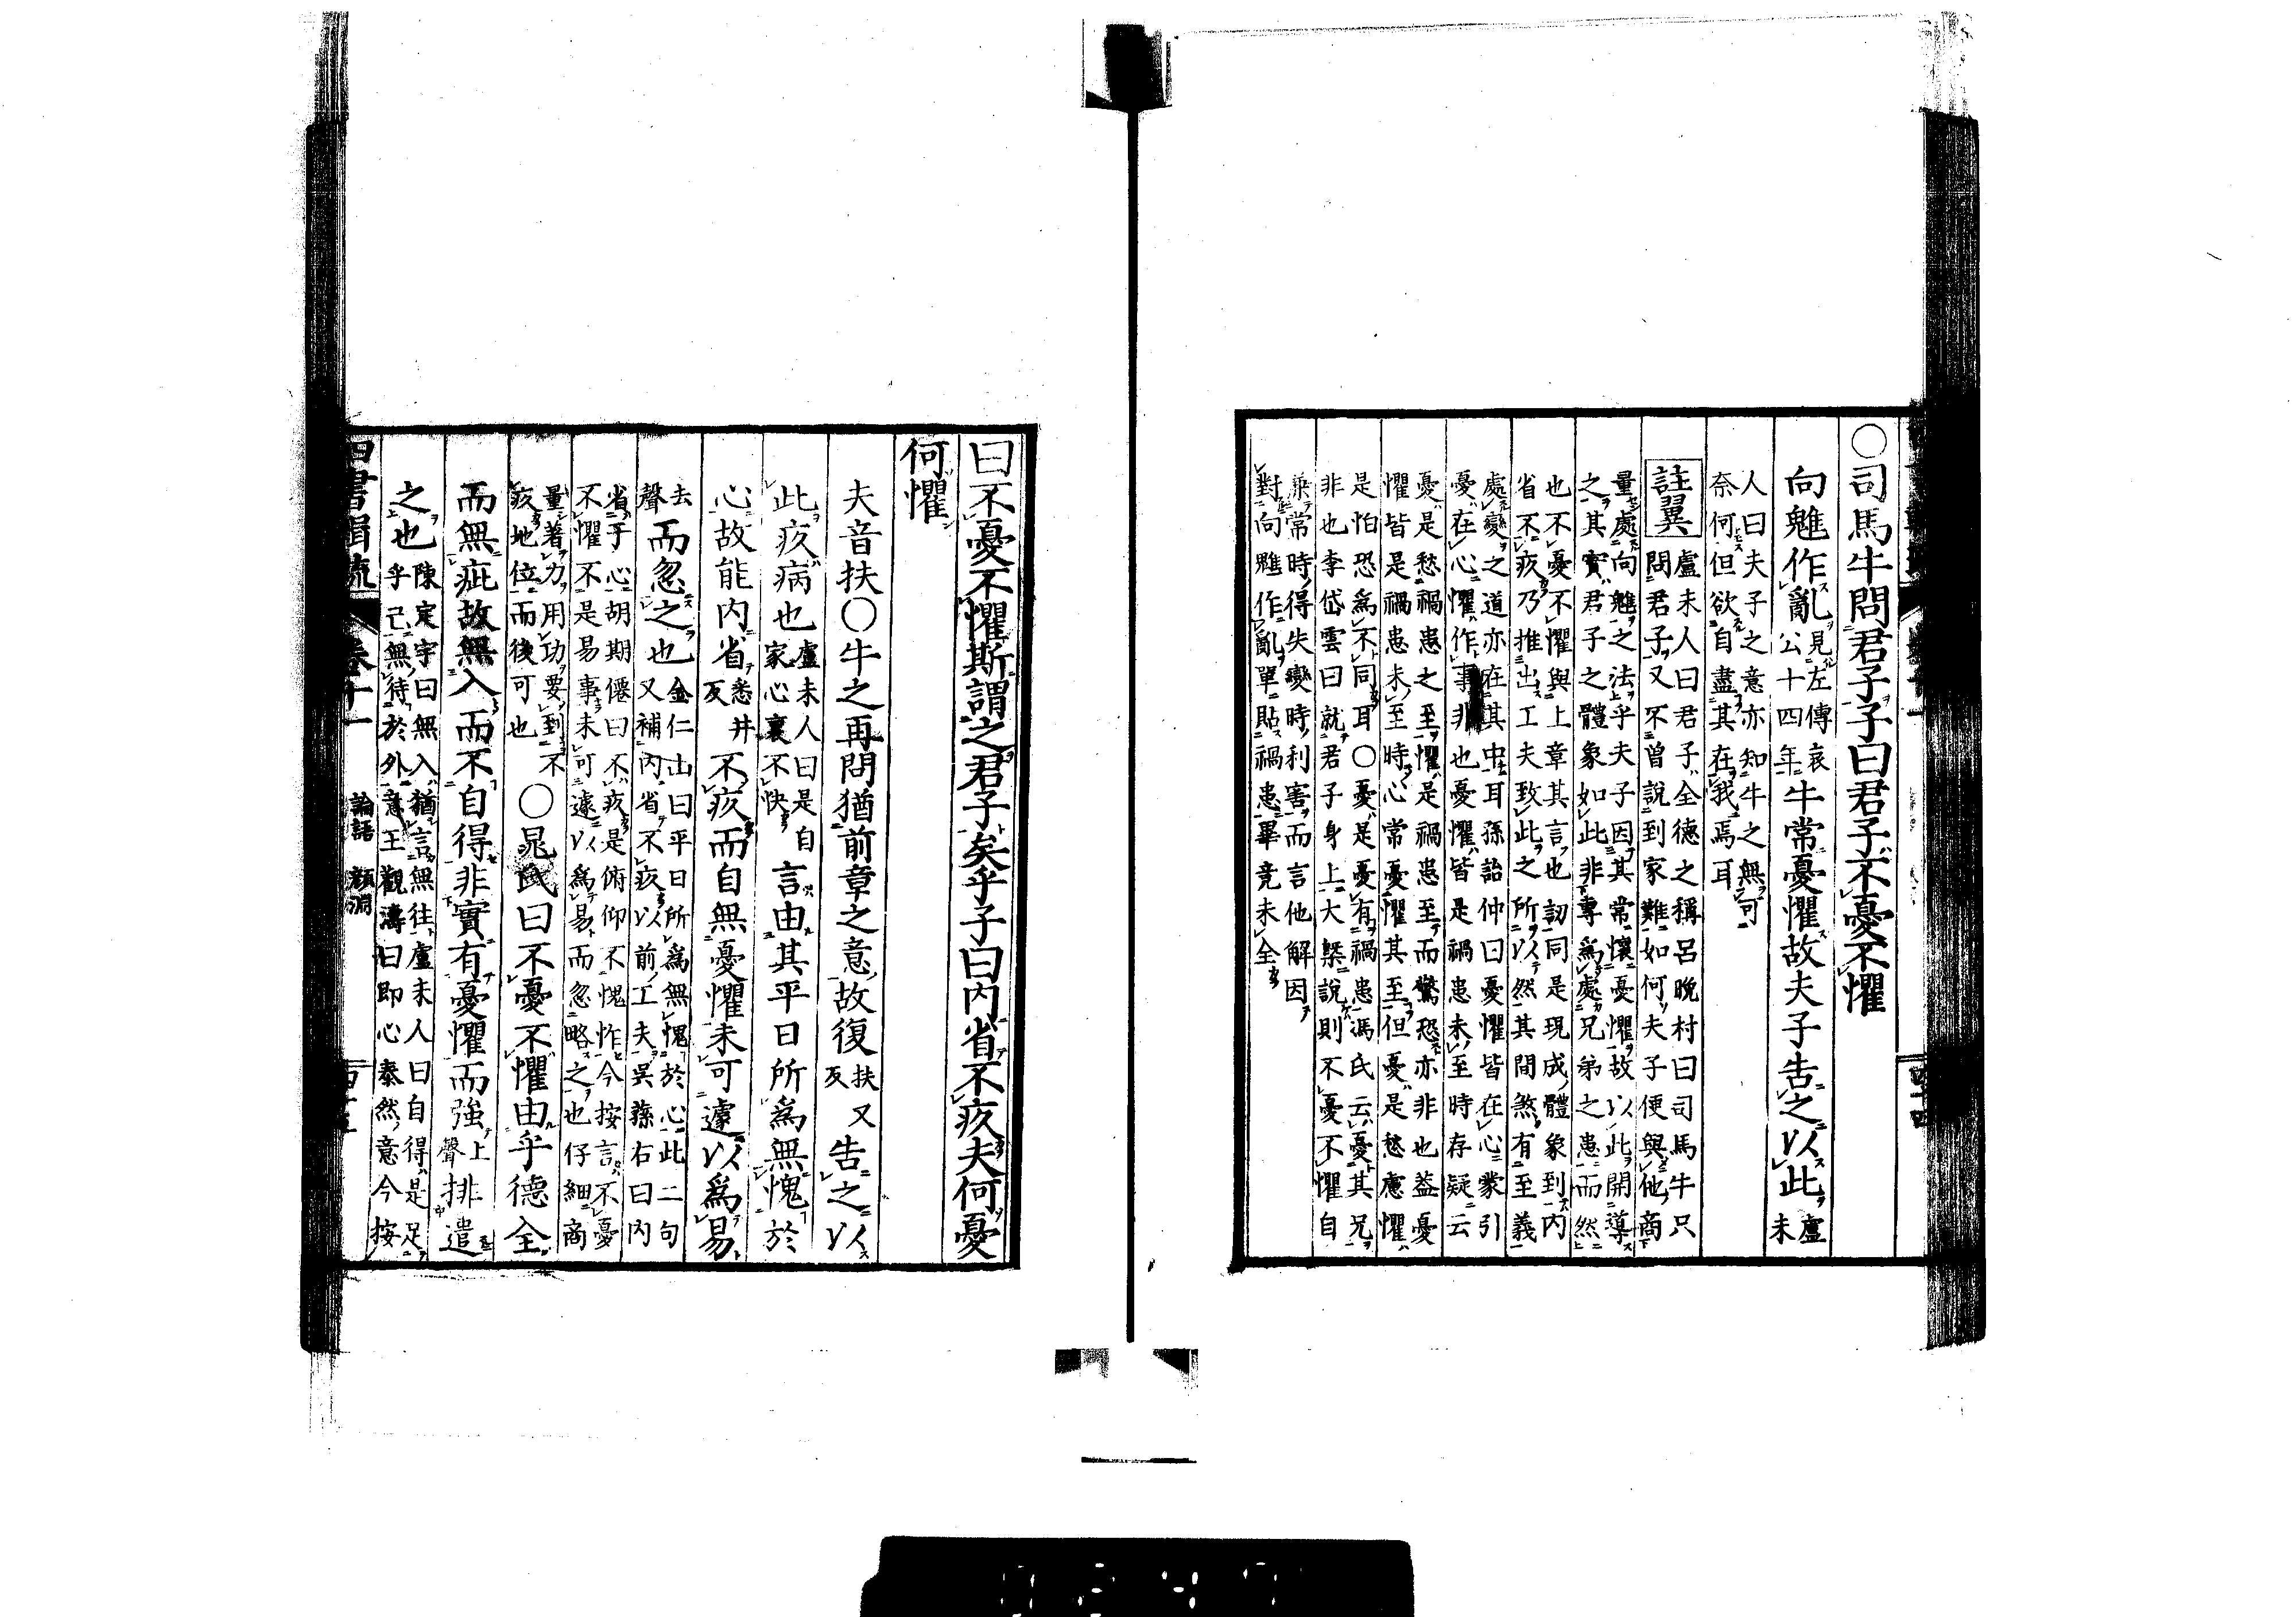 ○司馬牛問君子子曰君子不憂不懼
向魋作亂見左傳哀公十四年牛常憂懼故夫子告之以此盧未
人曰夫子之意亦知牛之無可
奈何但欲自盡其在我焉耳
註翼盧未人曰君子全德之稱呂晚村曰司馬牛只
問君子又不曾說到家難如何夫子便與他商
量處向魋之法乎夫子因其常懷憂懼故以此開導
之其實君子之體象如此非專為處兄弟之患而然
也不憂不懼與上章其言也訒同是現成體象到內
省不疚乃推出工夫致此之所以然其間煞有至義
處變之道亦在其中耳孫詒仲曰憂懼皆在心蒙引
憂在心懼作事非也憂懼皆是禍患未至時存疑云
憂是愁禍患之至懼是禍患至而驚恐亦非也益憂
懼皆是禍患未至時心常憂懼其至但憂是愁慮懼
是怕恐為不同耳○憂是憂有禍患馮氏云憂其兄
非也李岱雲曰就君子身上大槩說則不憂不懼自
兼常時得失變時利害而言他解因
對向魋作亂單貼禍患畢竟未全
曰不憂不懼斯謂之君子矣乎子曰內省不疚夫何憂
何懼
夫音扶○牛之再問猶前章之意故復扶又反告之以
此疚病也盧未人曰是自家心裏不快言由其平日所為無愧於
心故能內省悉井反不疚而自無憂懼未可遽以為易
去聲而忽之也金仁山曰平日所為無愧於心此二句
又補內省不疚以前工夫吳蓀右曰內
省于心胡期僊曰不疚是俯仰不愧怍今按言不憂
不懼不是易事未可遽以為易而忽略之也仔細商
量著力用功要到不
疚地位而後可也○晁氏曰不憂不懼由乎德全
而無疵故無入而不自得非實有憂懼而強上聲排遣
之也陳定宇曰無入猶言無往盧未人曰自得是足
乎己無待於外意王觀濤曰即心泰然意今按
四書輯疏 卷十一 論語 顏淵